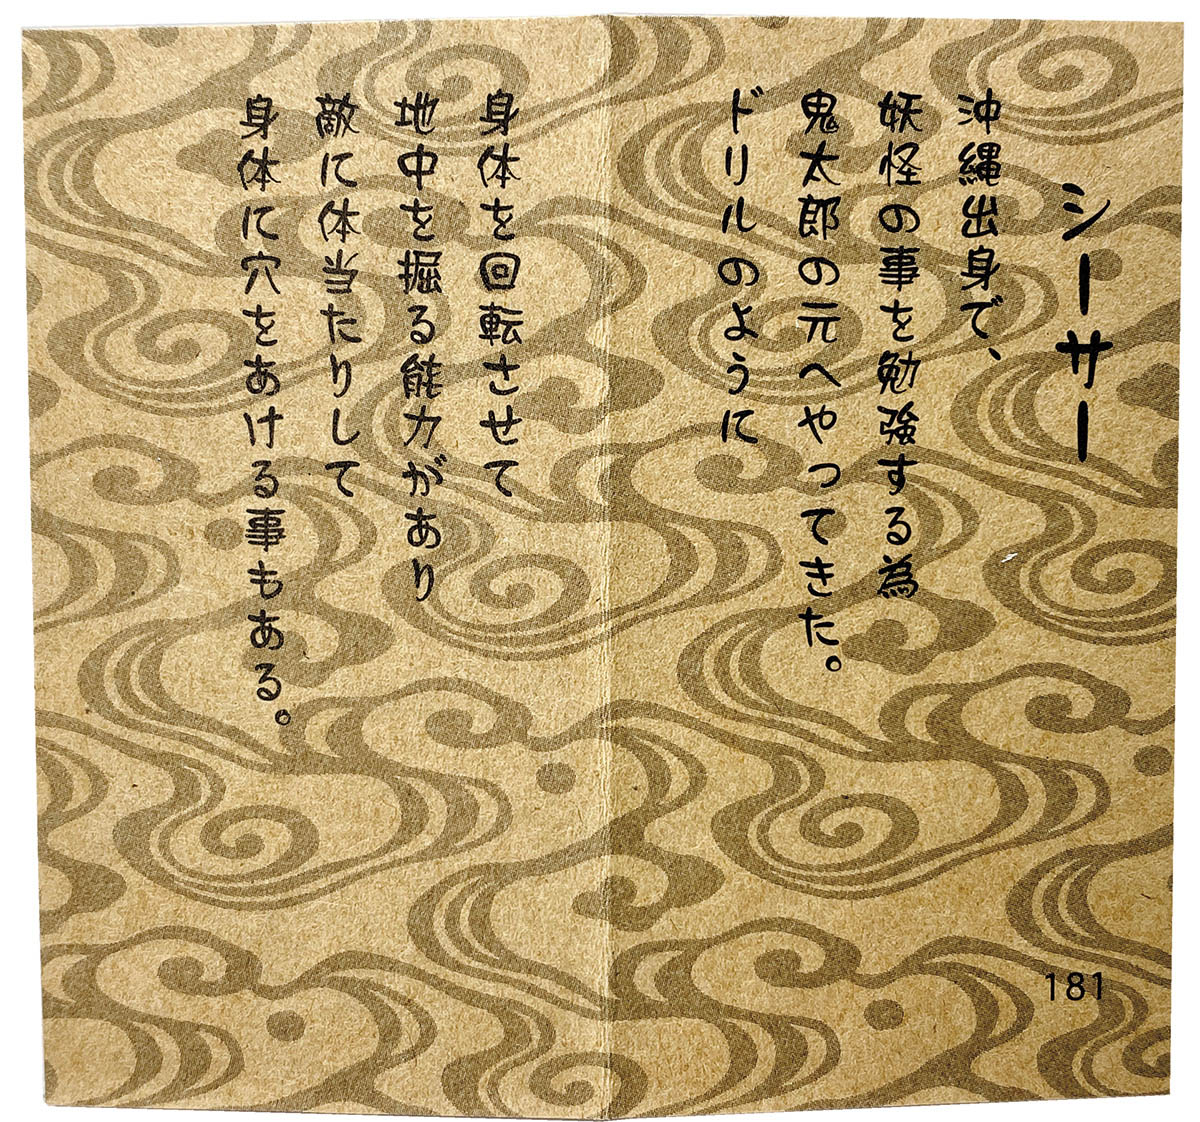 シーサー
沖縄出身で、
妖怪の事を勉強する為
鬼太郎の元へやってきた。
ドリルのように
身体を回転させて
地中を掘る能力があり
敵に体当たりして
身体に穴をあける事もある。
181